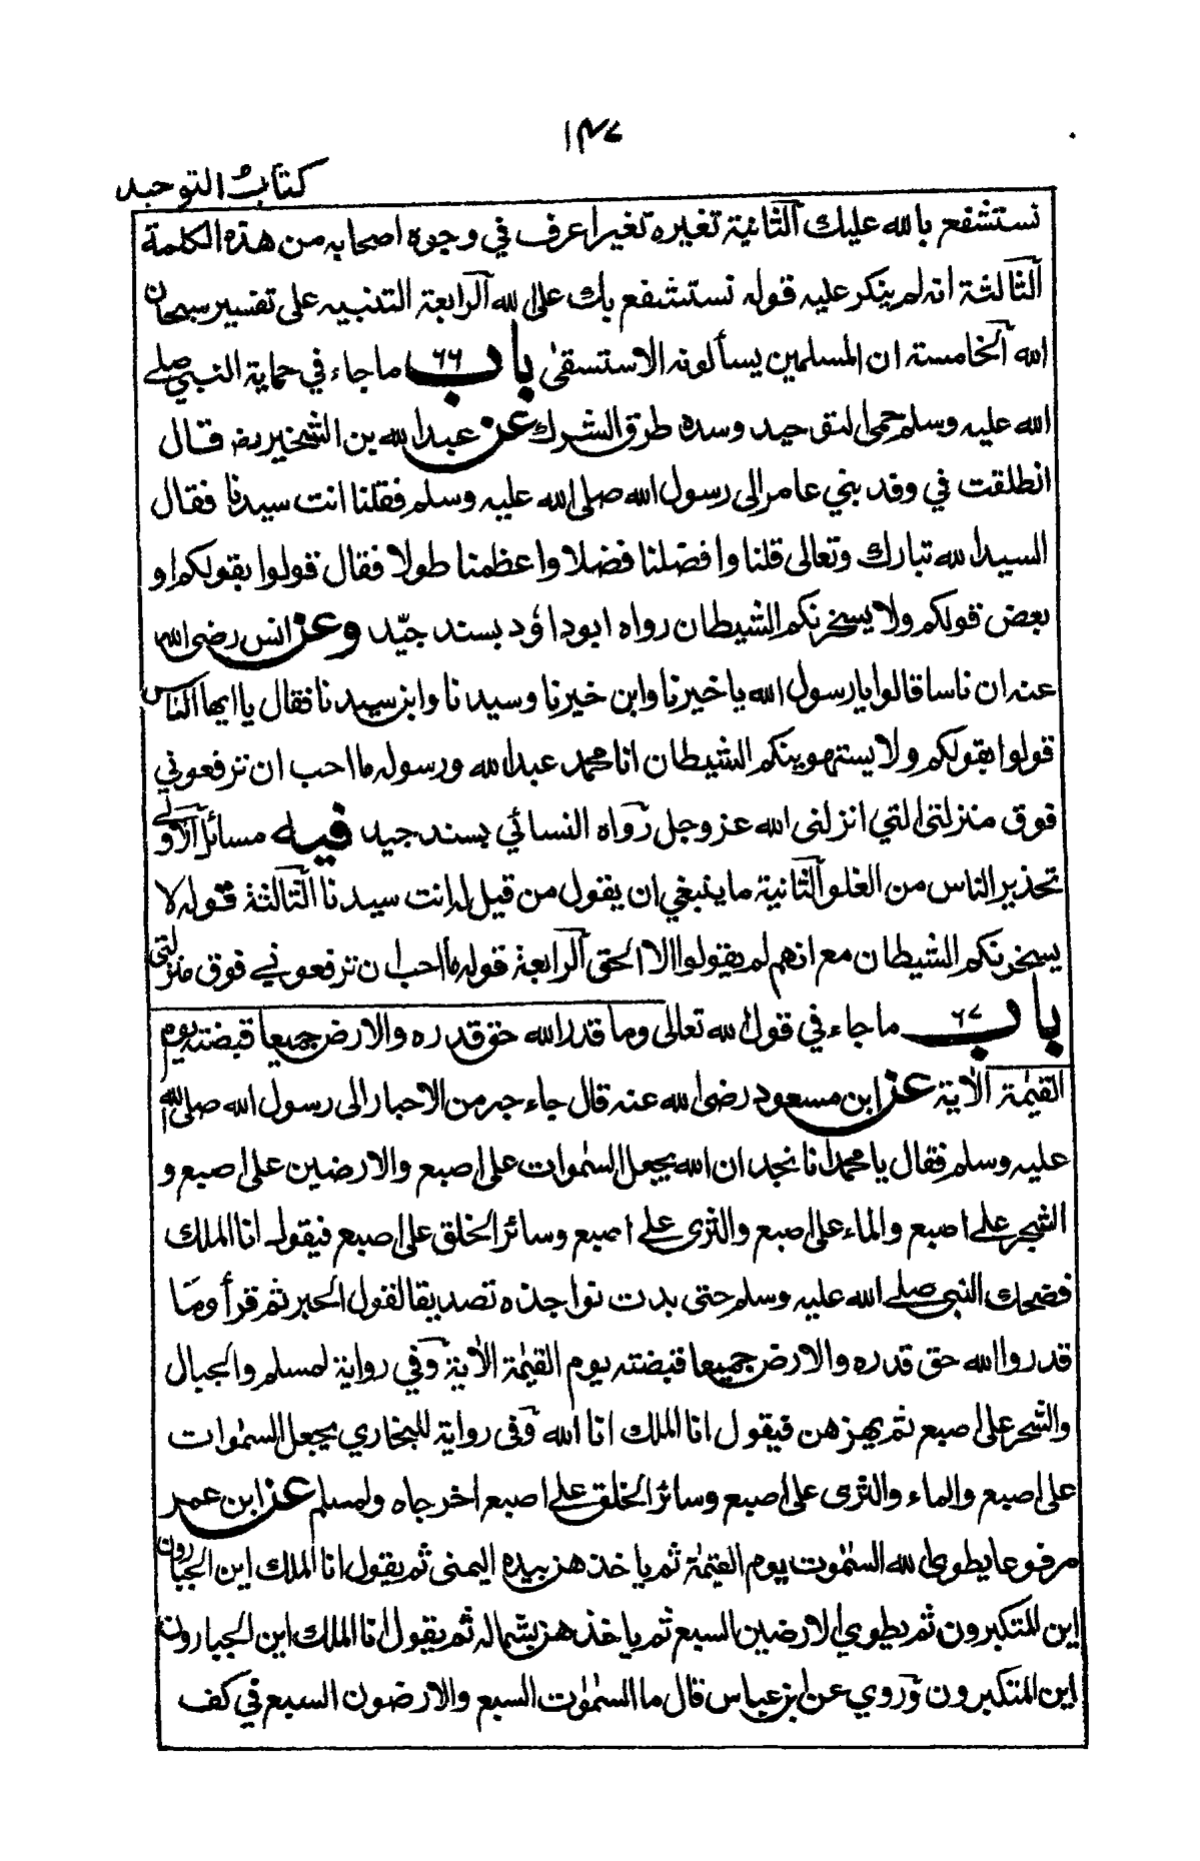 ١٤٧
كتاب التوحيد
نستشفع بالله عليك الثانية تغيره تغيرا عرف في وجوه اصحابه من هذه الكلمة
الثالثة انه لم ينكر عليه قوله نستشفع بك على الله الرابعة التنبيه على تفسير سبحان
الله الخامسة ان المسلمين يسألونه الاستسقى باب ٦٦ ما جاء في حماية النبي صلى
الله عليه وسلم حمى التوحيد وسده طرق الشرك عن عبدالله بن الشخير رضـ قال
انطلقت في وفد بني عامر الى رسول الله صلى الله عليه وسلم فقلنا انت سيدنا فقال
السيد الله تبارك وتعالى قلنا وافضلنا فضلا واعظمنا طولا فقال قولوا بقولكم او
بعض قولكم ولا يسخرنكم الشيطان رواه ابوداؤد بسند جيّد وعن انس رضى الله
عنه ان ناسا قالوا يارسول الله يا خيرنا وابن خيرنا وسيدنا وابن سيدنا فقال يا ايها الناس
قولوا بقولكم ولا يستهوينكم الشيطان انا محمد عبدالله ورسوله ما احب ان ترفعوني
فوق منزلتى التي انزلنى الله عز وجل رواه النسائي بسند جيد فيه مسائل الاولى
تحذير الناس من الغلو الثانية ما ينبغي ان يقول من قيل له انت سيدنا الثالثة قوله لا
يسخرنكم الشيطان مع انهم لم يقولوا الا الحق الرابعة قوله ما احب ان ترفعوني فوق منزلتى
باب ٦٧ ما جاء في قول الله تعالى وما قدر الله حق قدره والارض جميعا قبضته يوم
القيٰمة الاٰية عن ابن مسعود رضى الله عنه قال جاء حبر من الاحبار الى رسول الله صلى الله
عليه وسلم فقال يا محمد انا نجد ان الله يجعل السمٰوات على اصبع والارضين على اصبع و
الشجر على اصبع والماء على اصبع والثرى على اصبع وسائر الخلق على اصبع فيقول انا الملك
فضحك النبي صلى الله عليه وسلم حتى بدت نواجذه تصديقا لقول الحبر ثم قرأ وما
قدروا الله حق قدره والارض جميعا قبضته يوم القيٰمة الاٰية وفي رواية لمسلم والجبال
والشجر على اصبع ثم يهزهن فيقول انا الملك انا الله وفى رواية للبخاري يجعل السمٰوات
على اصبع والماء والثرى على اصبع وسائر الخلق على اصبع اخرجاه ولمسلم عن ابن عمر
مرفوعا يطوى الله السمٰوت يوم القيٰمة ثم ياخذهن بيده اليمنى ثم يقول انا الملك اين الجبارون
اين المتكبرون ثم يطوي الارضين السبع ثم ياخذهن بشماله ثم يقول انا الملك اين الجبارون
اين المتكبرون وروي عن ابن عباس قال ما السمٰوٰت السبع والارضون السبع في كف